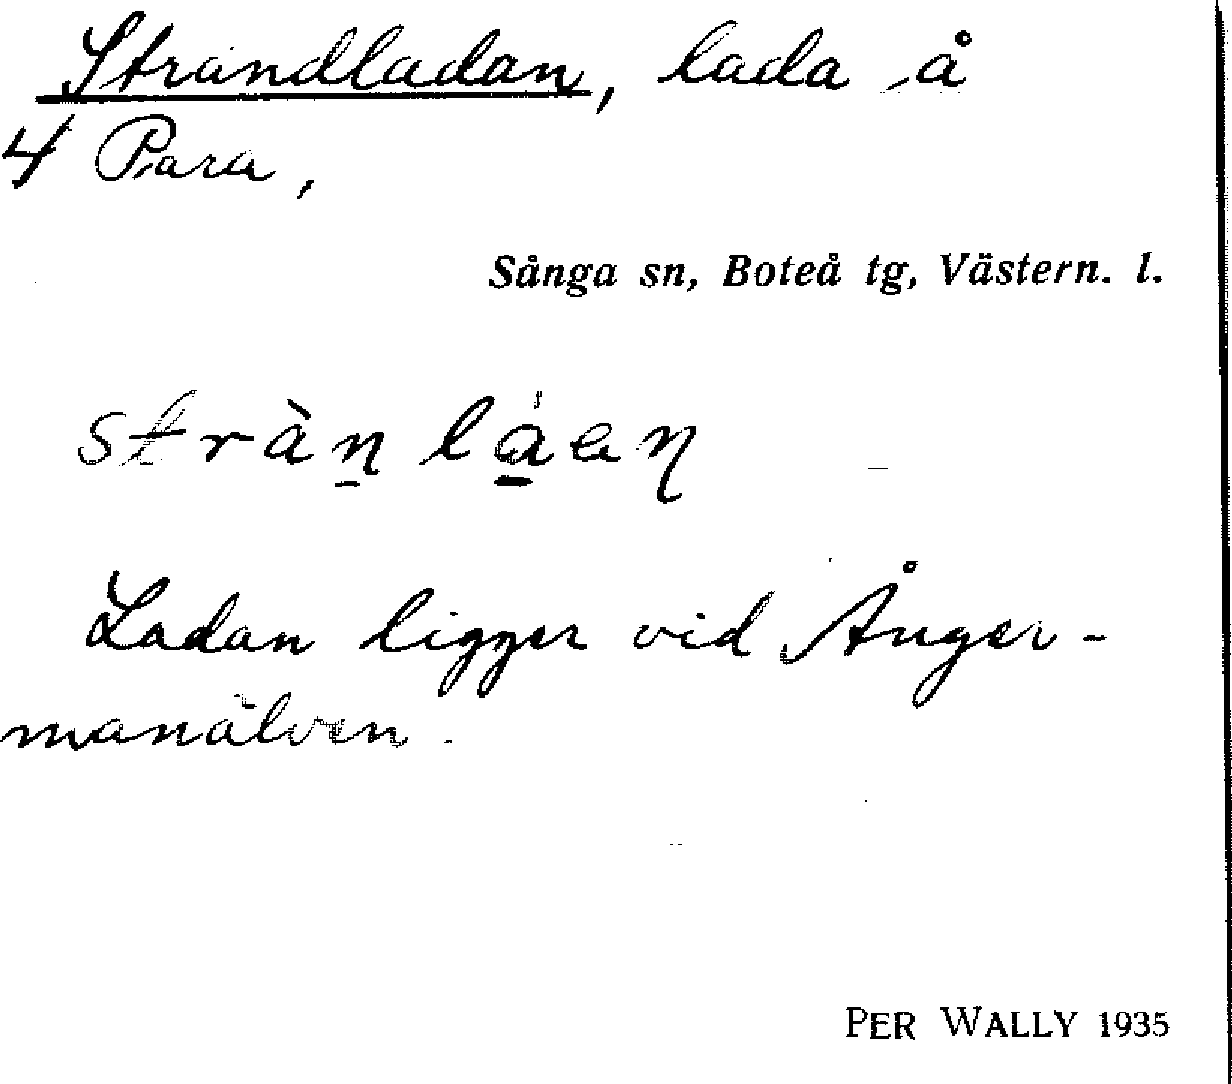 Strandladan, lada å
4 Para,
Sånga sn, Boteå tg, Västern. l.
stràn̲ lá̲en
Ladan ligger vid Ånger-
manälven.
PER WALLY 1935